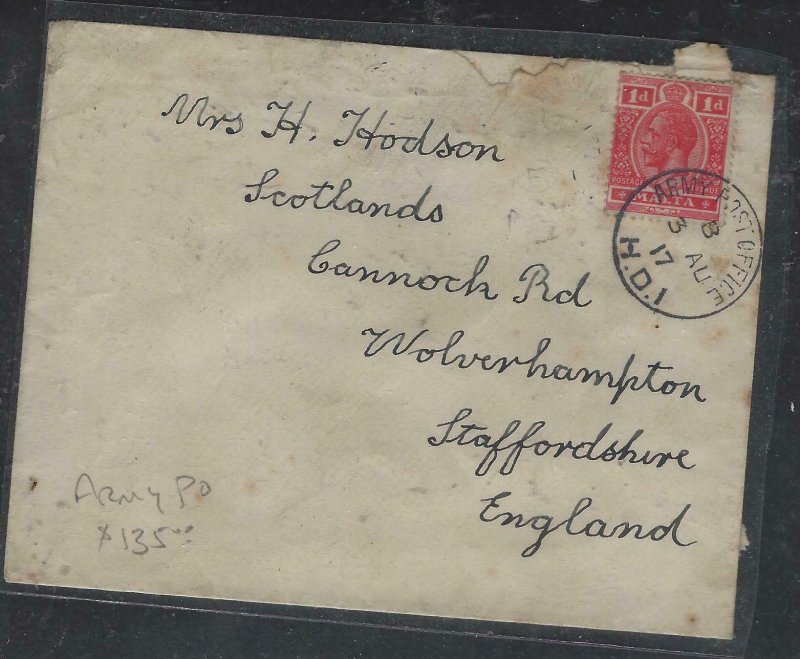 1d 1d
POSTAGE
MALTA
ARMY POST OFFICE
B
3 AU
17
H.D.1
Mrs H. Hodson
Scotlands
Cannock Rd
Wolverhampton
Staffordshire
England
ARMY PO
$135.00